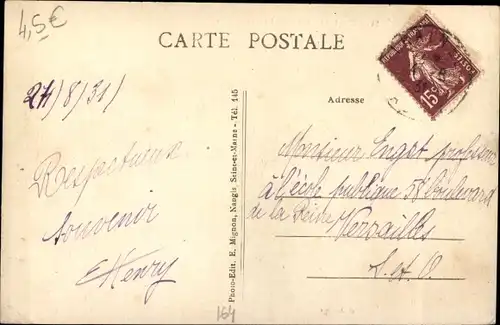 4,5€
CARTE POSTALE
REPUBLIQUE FRANÇAISE
POSTES
15c
24/8/31
Adresse
Respectueux
souvenir
EHenry
Monsieur Engst professeur
à l'école publique 58 boulevard
de la Reine
Versailles
S. et O.
Photo-Edit. E. Mignon, Nangis, Seine-et-Marne - Tél. 145
164